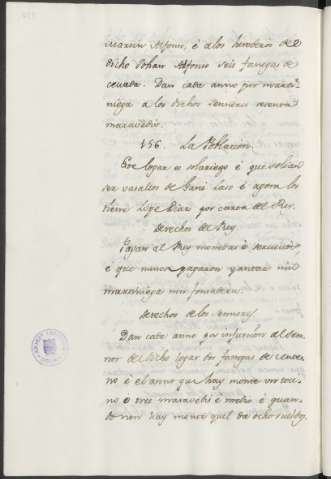 Martin Alfonso, é a los herederos de
dicho Johan Alfonso seis fanegas de
cevada. Dan cada anno por marti-
niega a los dichos sennores sesenta
maravedis.
156. La Poblacion.
Este logar es solariego é que solian
ser vasallos de Garci Laso é agora los
tiene Lope Diaz por carta del Rey.
Derechos del Rey
Pagan al Rey monedas é servicios,
é que nunca pagaron yantar nin
martiniega nin fonsadera.
Derechos de los sennores
Dan cada anno por infurcion al sen-
nor del dicho logar dos fanegas de cente-
no é el anno que hay monte un toci-
no é tres maravedis é medio é quan-
do non hay monte quel da ocho sueldos,